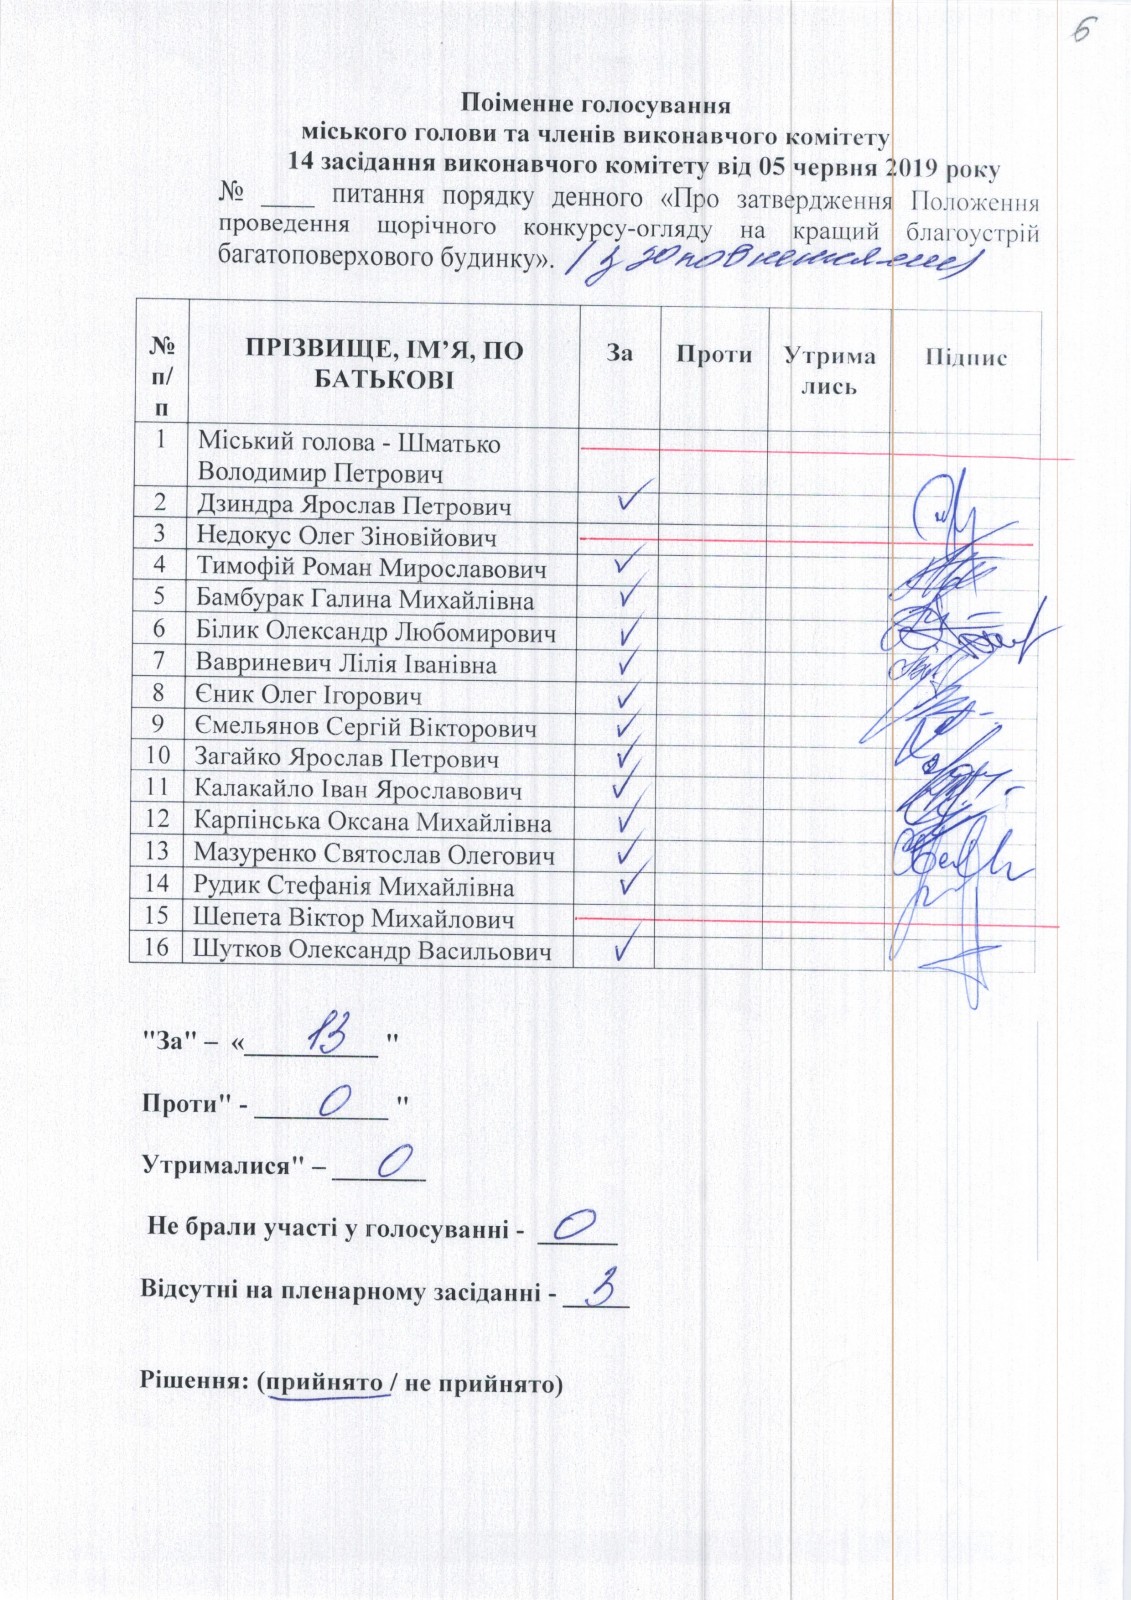 6
Поіменне голосування
міського голови та членів виконавчого комітету
14 засідання виконавчого комітету від 05 червня 2019 року
№ ____ питання порядку денного «Про затвердження Положення
проведення щорічного конкурсу-огляду на кращий благоустрій
багатоповерхового будинку». / з доповненнями
№ п/п ПРІЗВИЩЕ, ІМ’Я, ПО БАТЬКОВІ За Проти Утримались Підпис
1 Міський голова - Шматько
Володимир Петрович
2 Дзиндра Ярослав Петрович ✓
3 Недокус Олег Зіновійович
4 Тимофій Роман Мирославович ✓
5 Бамбурак Галина Михайлівна ✓
6 Білик Олександр Любомирович ✓
7 Вавриневич Лілія Іванівна ✓
8 Єник Олег Ігорович ✓
9 Ємельянов Сергій Вікторович ✓
10 Загайко Ярослав Петрович ✓
11 Калакайло Іван Ярославович ✓
12 Карпінська Оксана Михайлівна ✓
13 Мазуренко Святослав Олегович ✓
14 Рудик Стефанія Михайлівна ✓
15 Шепета Віктор Михайлович
16 Шутков Олександр Васильович ✓
"За" – «13 "
Проти" - 0 "
Утрималися" – 0
Не брали участі у голосуванні - 0
Відсутні на пленарному засіданні - 3
Рішення: (прийнято / не прийнято)